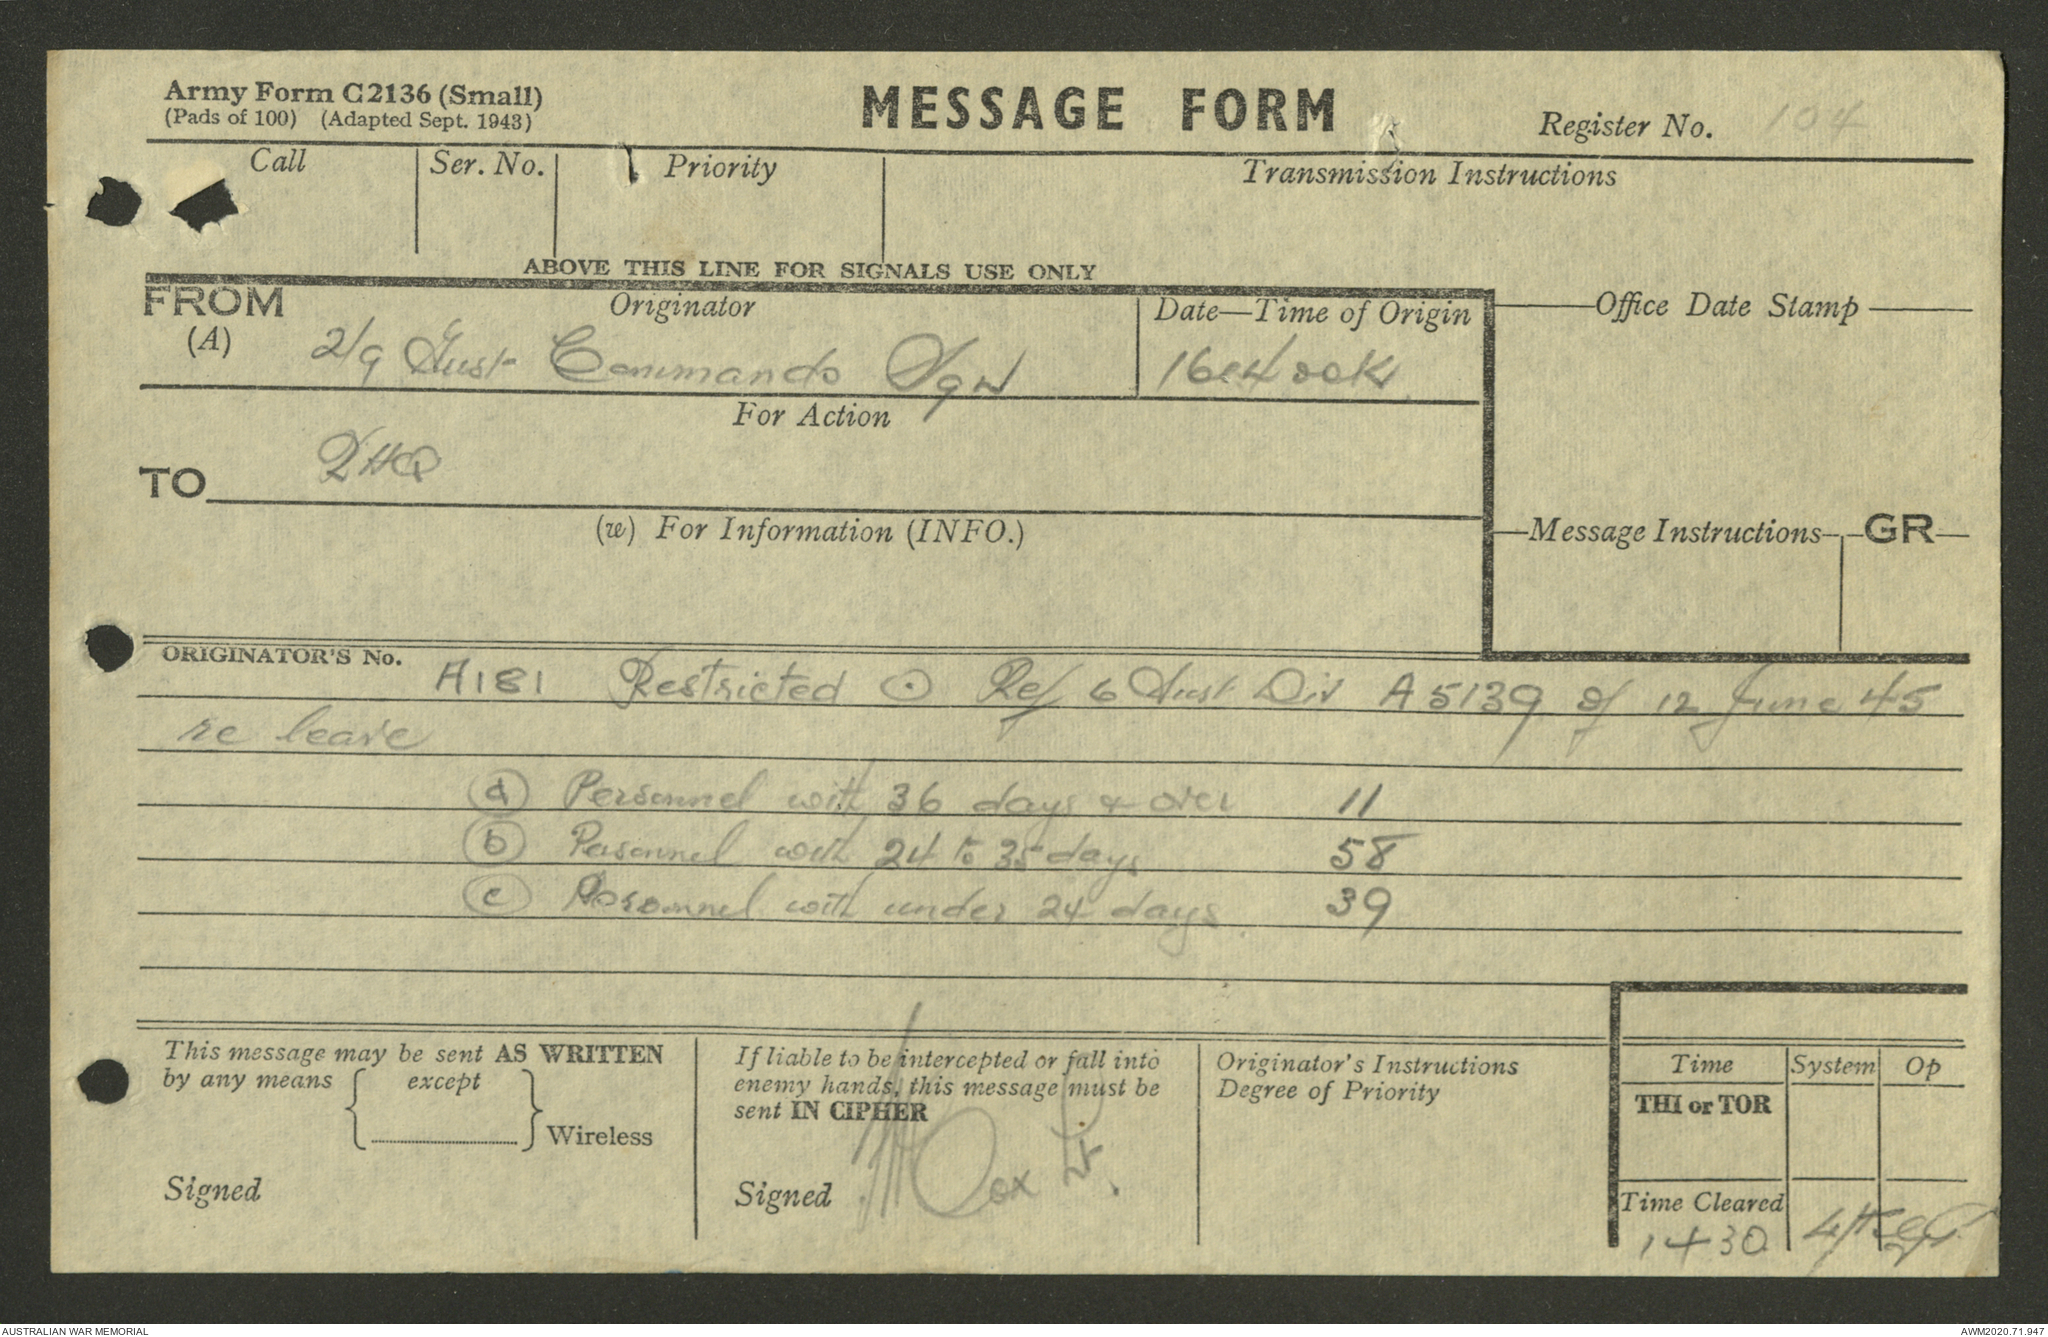 Army Form C2136 (Small)
(Pads of 100) (Adapted Sept. 1943)
MESSAGE FORM
Register No. 104
Call Ser. No. Priority Transmission Instructions
ABOVE THIS LINE FOR SIGNALS USE ONLY
FROM
(A)
Originator
Date—Time of Origin
Office Date Stamp
2/9 Aust Commando Sqn
161400K
For Action
TO
DHQ
(w) For Information (INFO.)
Message Instructions GR
ORIGINATOR'S No.
A181 Restricted ⊙ Ref 6 Aust Div A5139 of 12 June 45
re leave
(a) Personnel with 36 days & over 11
(b) Personnel with 24 to 35 days 58
(c) Personnel with under 24 days 39
This message may be sent AS WRITTEN
by any means { except } Wireless
Signed
If liable to be intercepted or fall into
enemy hands, this message must be
sent IN CIPHER
Signed Cox Lt.
Originator's Instructions
Degree of Priority
Time System Op
THI or TOR
Time Cleared
1430
AUSTRALIAN WAR MEMORIAL
AWM2020.71.947